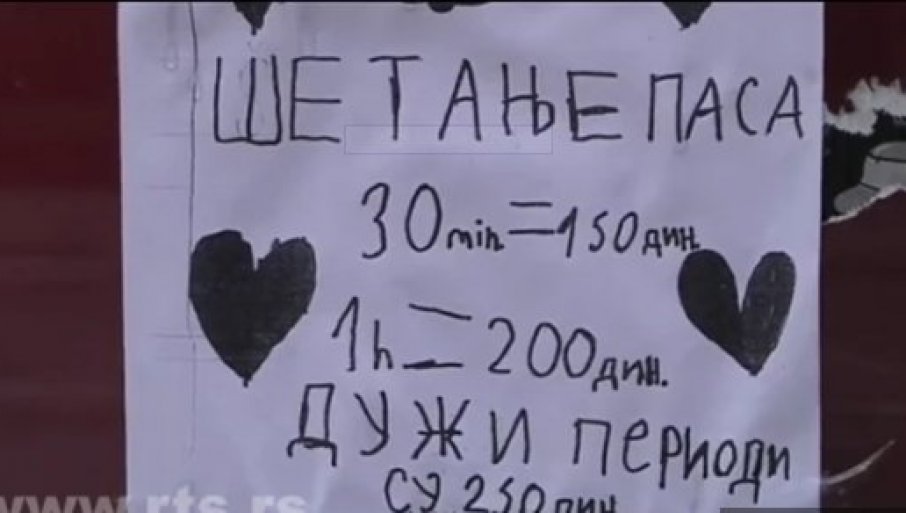 ШЕТАЊЕ ПАСА
30 min = 150 дин.
1h = 200 дин.
ДУЖИ ПЕРИОДИ
СУ 250 дин
www.rts.rs